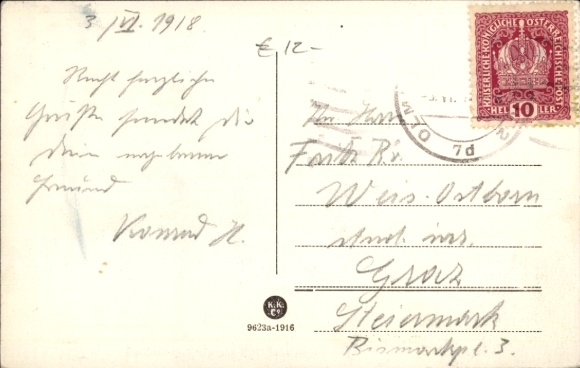 3/VI. 1918.
€ 12-
Recht herzliche
Grüße sendet dir
dein ergebener
Freund
Konrad H.
KAISERLICHE KÖNIGLICHE ÖSTERREICHISCHE POST
HELLER 10 HELLER
OLM
An Herrn
Fritz
Graz
Steiermark
Bismarckpl. 3.
K.K.
Co
9623a-1916